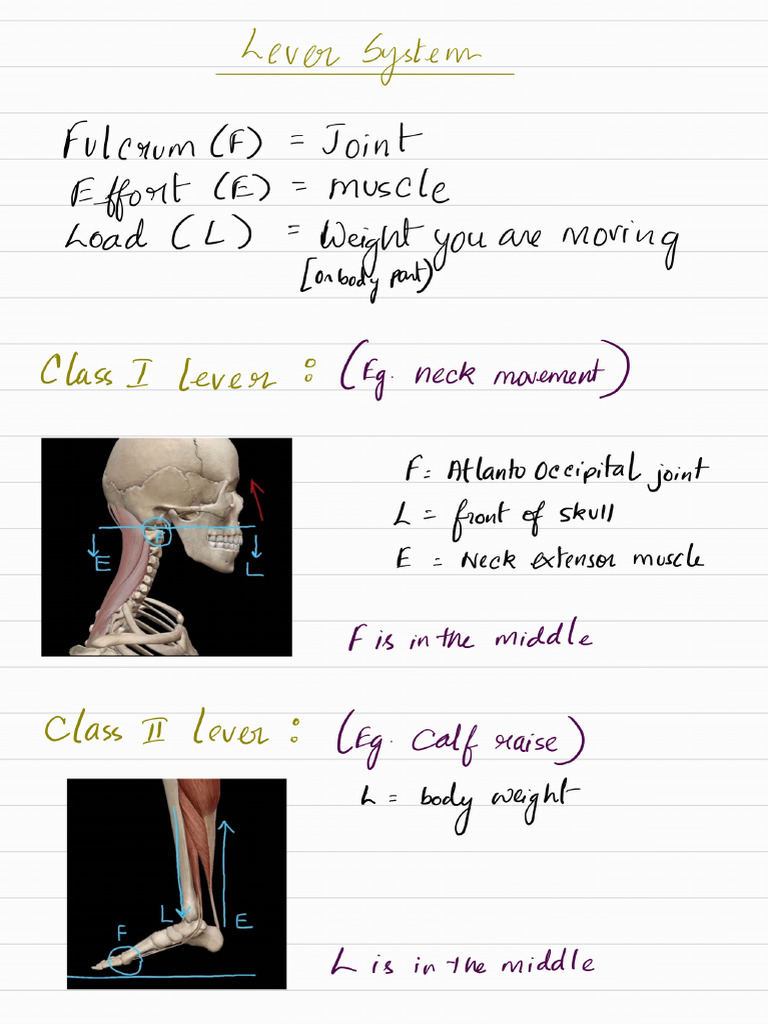 Lever System
Fulcrum (F) = Joint
Effort (E) = muscle
Load (L) = Weight you are moving
[on body part)
Class I lever : (Eg. neck movement)
F = Atlanto Occipital joint
L = front of skull
E = Neck extensor muscle
E
F
L
F is in the middle
Class II lever : (Eg. Calf raise)
L = body weight
L
E
F
L is in the middle